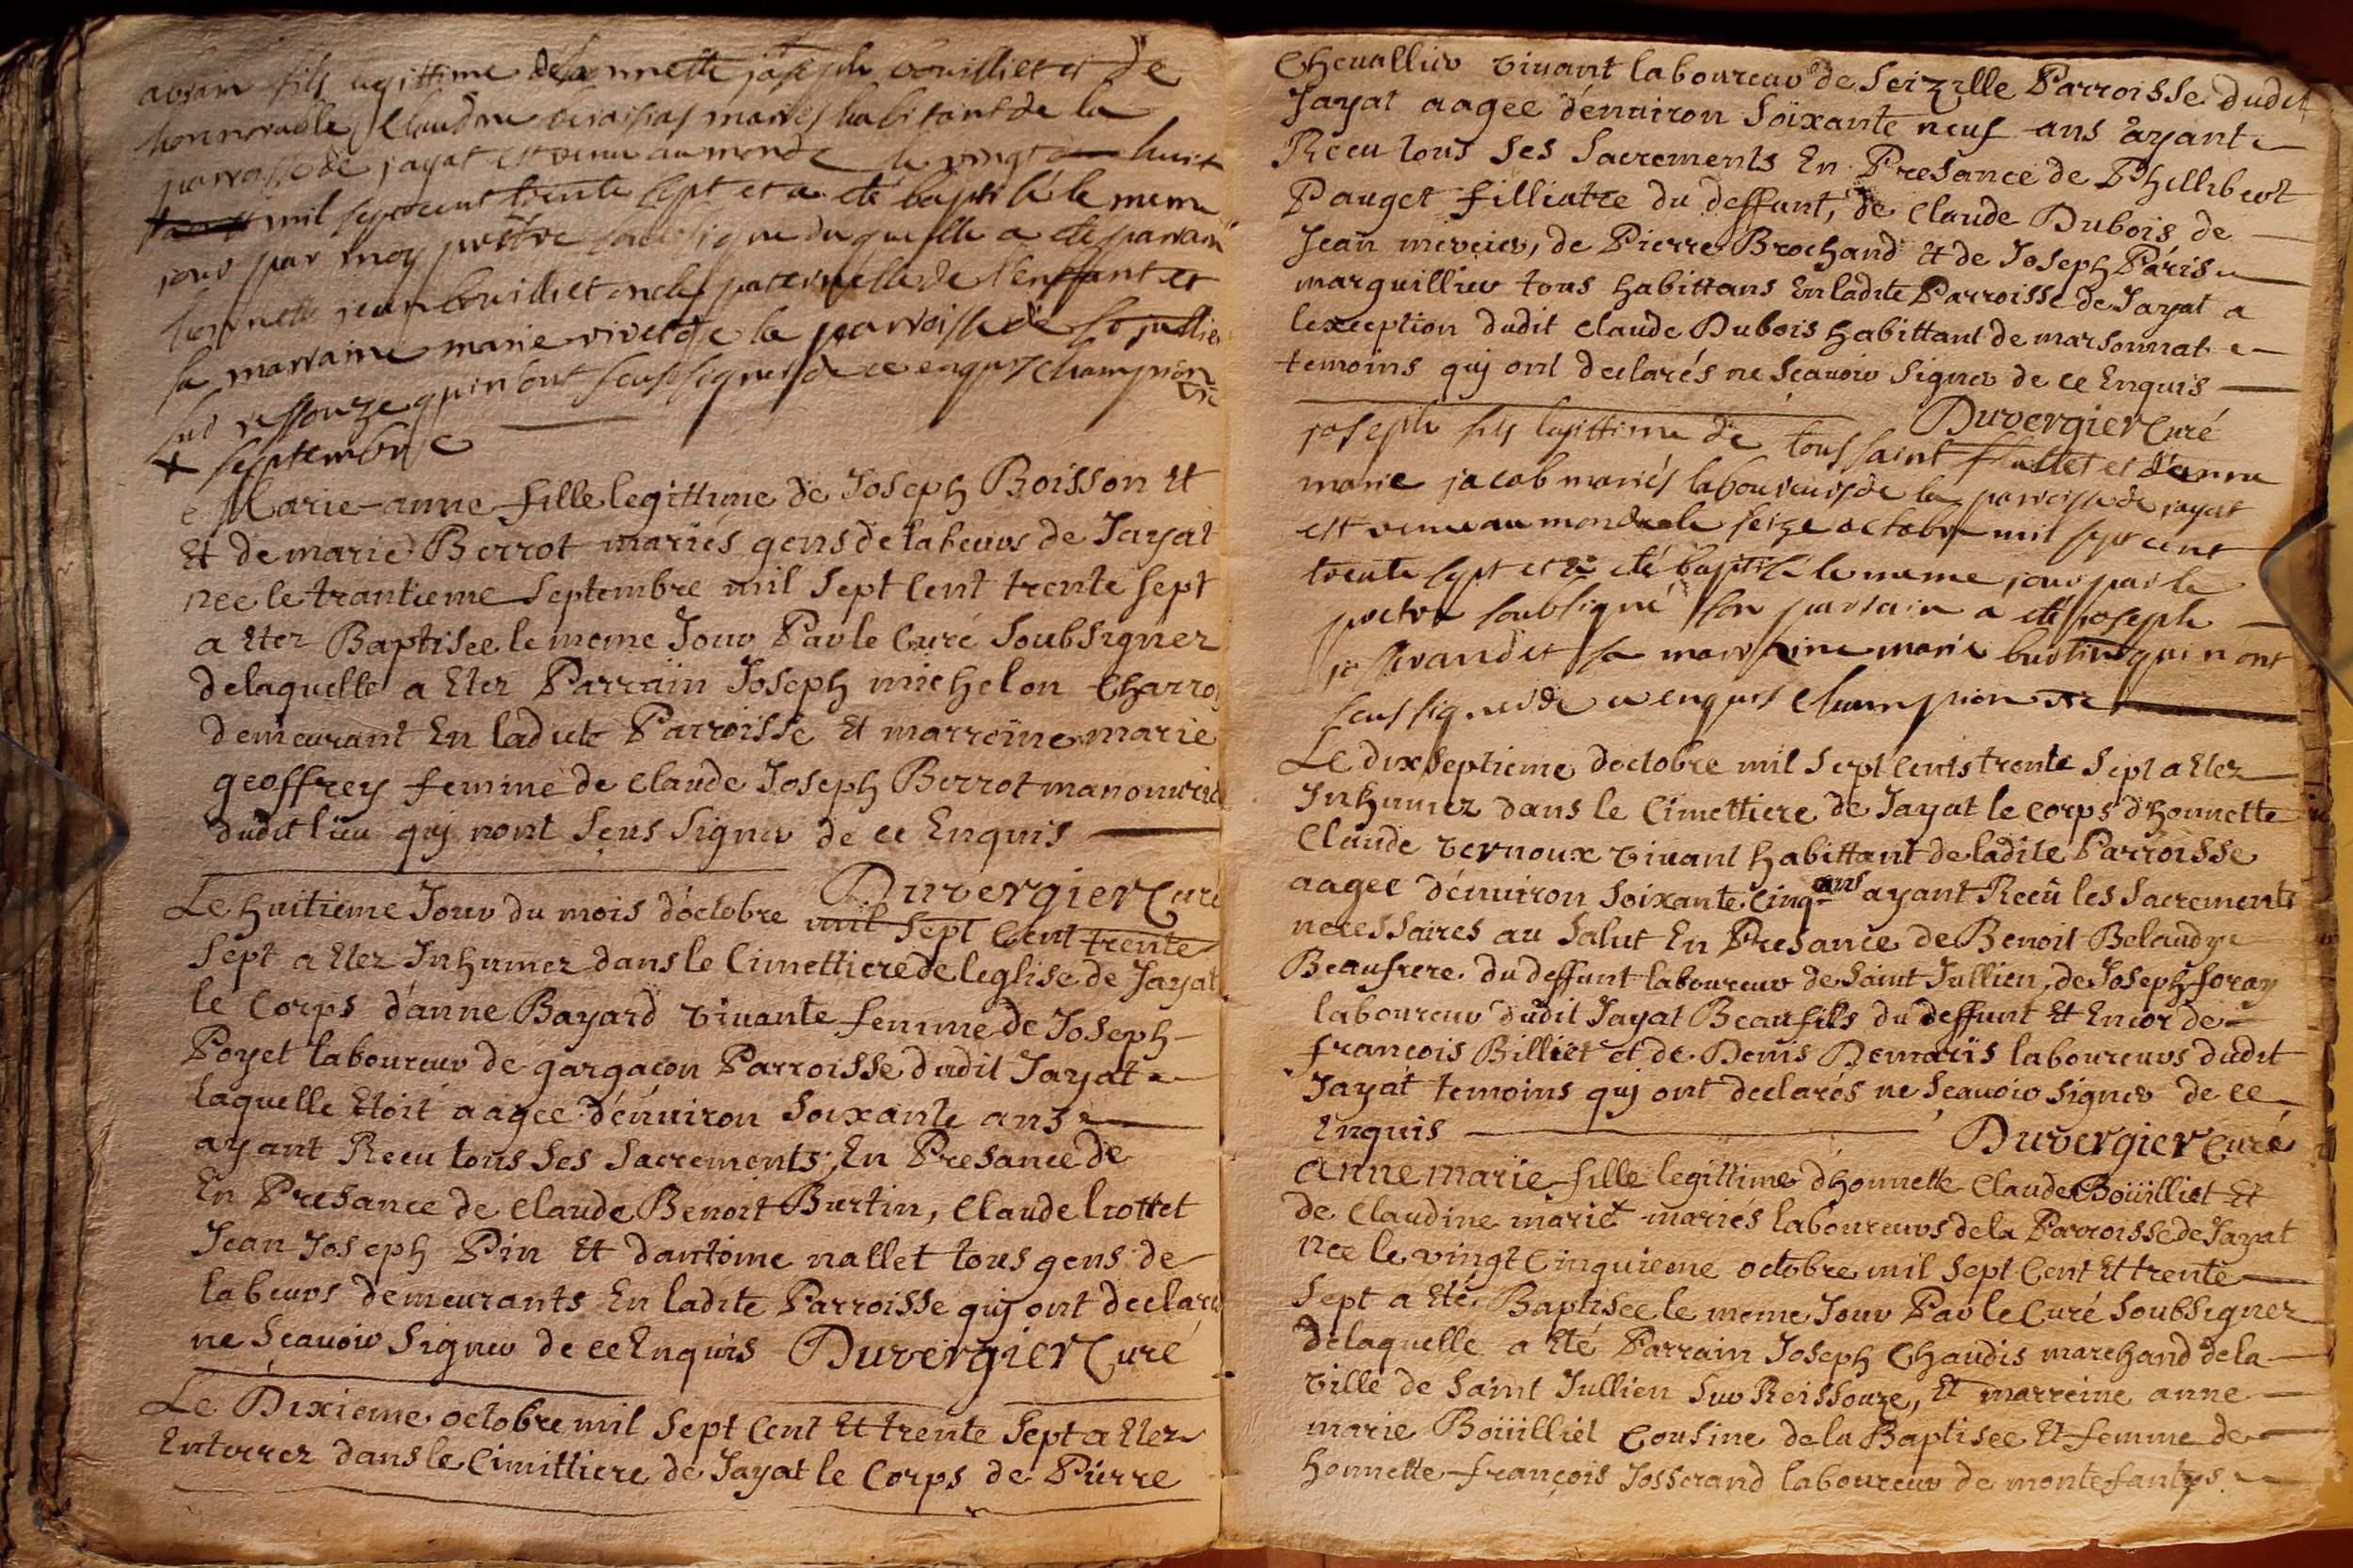 fils legittime joseph bouilliet et de
honnorable Claudine mariés habitant de la
parroisse de jayat est venu au monde le vingt huit
mil sept cent trente sept et a eté baptisé le meme
jour par moy prêtre soubsigné duquelle a eté parrain
honnette jean bouilliet oncle paternelle de l'enffant et
sa marraine marie vivet de la parroisse de st jullien
sur ressouze qui n'ont seus signer de ce enquis champion
vic
x septembre
Marie-anne fille legittime de Joseph Boisson Et
Et de marie Berrot mariés gens de labeurs de Jayat
née le trantieme Septembre mil Sept Cent trente Sept
a Eter Baptisee le meme Jour Par le Curé SoubSigner
delaquelle a Eter Parrain Joseph michelon Charro
demeurant En ladite Parroisse Et marreine marie
geoffrey femme de Claude Joseph Berrot manouvri
dudit lieu quj nont Seus Signer de ce Enquis
Duvergier Curé
Le huitieme Jour du mois d'octobre mil Sept Cent trente
Sept a Eter Inhumez dans le Cimettiere de leglise de Jayat
le Corps d'anne Bayard vivante femme de Joseph
Poyet laboureur de gargaçon Parroisse dudit Jayat
laquelle Etoit aagee d'enuiron Soixante ans
ayant Recu tous Ses Sacrements, En Presance de
En Presance de Claude Benoit Burtin, Claude liottet
Jean Joseph Pin Et dantoine nallet tous gens de
labeurs demeurants En ladite Parroisse quj ont declare
ne Scauoir Signer de ce Enquis Duvergier Curé
Le Dixieme octobre mil Sept Cent Et trente Sept a Eter
Enterrez dans le Cimittiere de Jayat le Corps de Pierre
Cheuallier viuant laboureur de Seizille Parroisse dudit
Jayat aagee d'enuiron Soixante neuf ans ayant
Recu tous Ses Sacrements En Presance de Phillibert
Pauget filliatre du deffunt, de Claude Dubois de
Jean mercier, de Pierre Brochand Et de Joseph Paris
marguillier tous habittans En ladite Parroisse de Jayat a
lexception dudit Claude Dubois habittant de marsonnat
temoins quj ont declarés ne Scauoir Signer de ce Enquis
Duvergier Curé
joseph fils legittime de toussaint et d'anne
marie jacob mariés laboureurs de la parroisse de jayat
est venu au monde le seize octobre mil sept cent
trente sept et a eté baptisé le meme jour par le
pretre soubsigné son parrain a eté joseph
josserand et sa marraine marie burtin qui n ont
seus signer de ce enquis champion vic
Le dix Septieme doctobre mil Sept Cents trente Sept a Eter
Inhumez dans le Cimettiere de Jayat le corps d'honnette
Claude vernoux viuant habittant de ladite Parroisse
aagee d'enuiron Soixante Cinq ans ayant Recu les Sacrements
necessaires au Salut En Presance de Benoit Belaudy
Beaufrere du deffunt laboureur de Saint Jullien, de Joseph foray
laboureur dudit Jayat Beaufils du deffunt Et Encor de
françois Billiet et de Denis Demaris laboureurs dudit
Jayat temoins quj ont declarés ne Scauoir Signer de ce
Enquis Duvergier Curé
Anne marie fille legittime d'honnette Claude Boüilliet Et
de Claudine mariet mariés laboureurs de la Parroisse de Jayat
née le vingt Cinquieme octobre mil Sept Cent Et trente
Sept a Eté Baptisee le meme Jour Par le Curé SoubSigner
delaquelle a Eté Parrain Joseph Chaudis marchand de la
ville de Saint Jullien Sur Reissouze, Et marreine anne
marie Boüilliet Cousine de la Baptisee Et femme de
honnette françois Josserand laboureur de montefantys